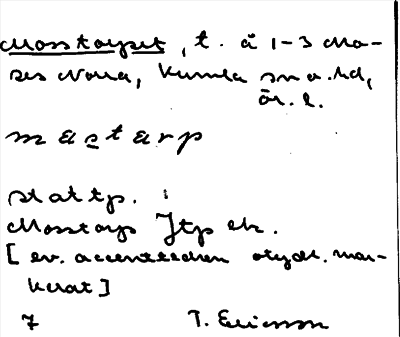 Mosstorpet, t. å 1-3 Mo-
ses Norra, Kumla sn o. hd,
Ör. l.
mɑstɑrp
stattp. :
Mosstorp Jtp ek.
[ev. accenttecken otydl. mar-
kerat]
7 T. Ericsson